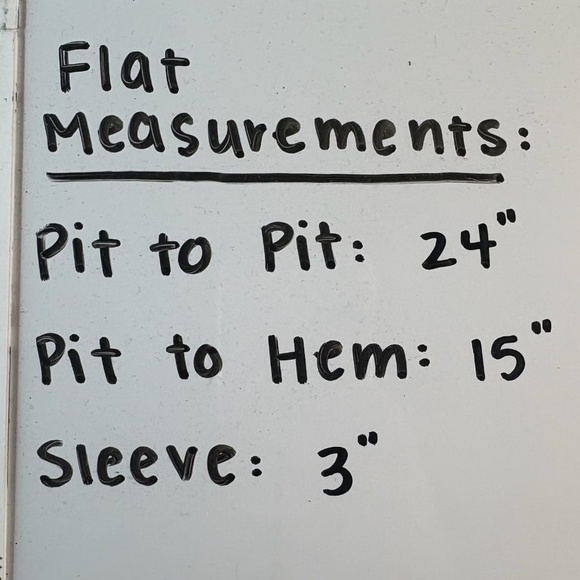 Flat
Measurements:
Pit to Pit: 24"
Pit to Hem: 15"
Sleeve: 3"